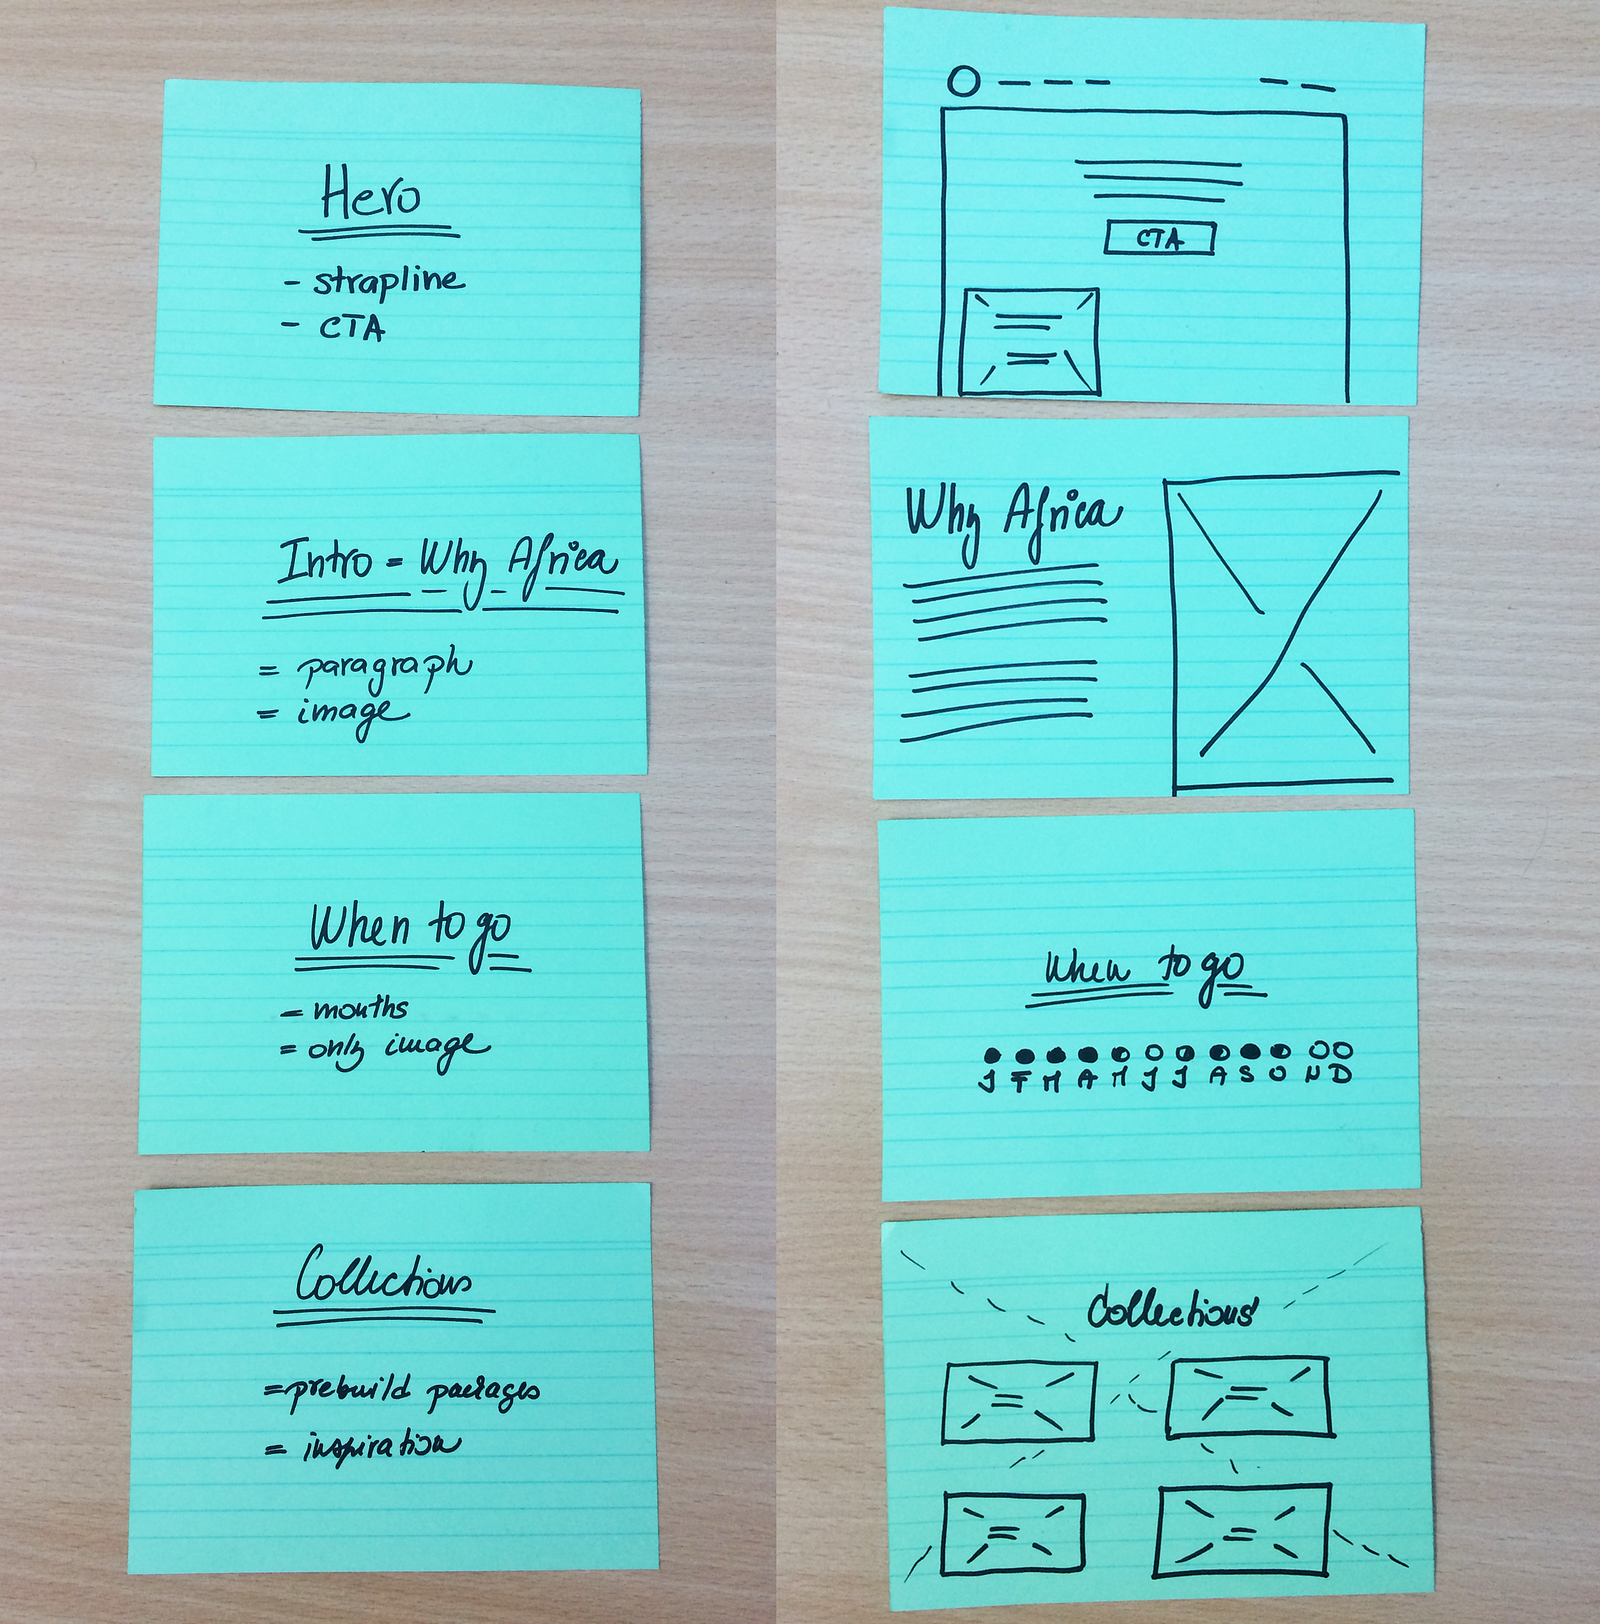 Hero
- strapline
- CTA
Intro = Why Africa
= paragraph
= image
When to go
= months
= only image
Collections
= prebuild packages
= inspiration
CTA
Why Africa
When to go
J F M A M J J A S O N D
Collections